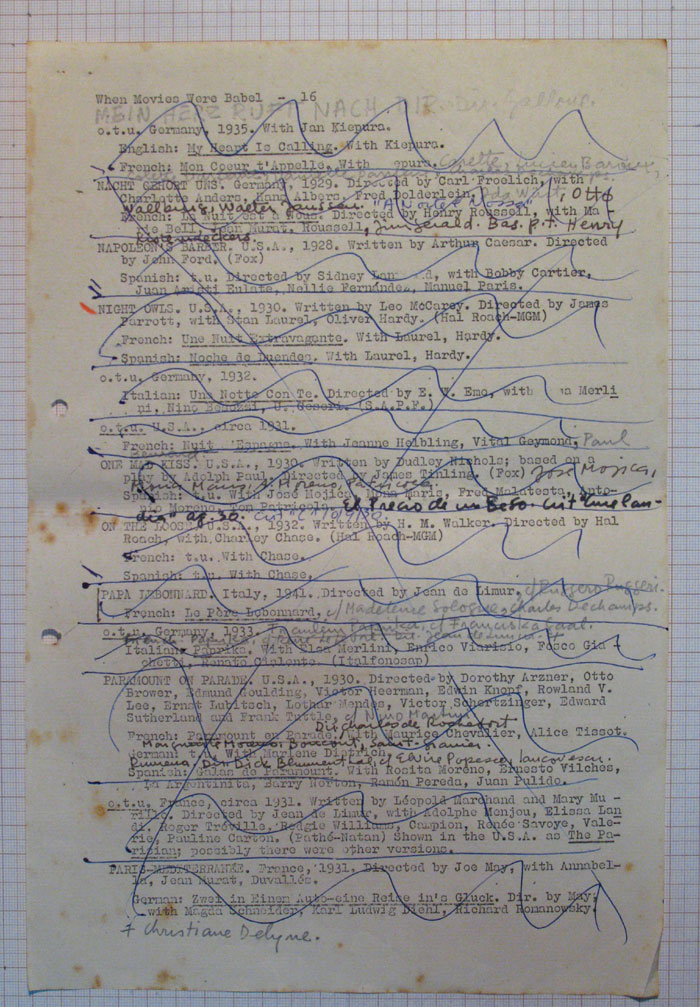 When Movies Were Babel - 16
MEIN HERZ RUFT NACH DIR. Dir. Gallone.
o.t.u. Germany, 1935. With Jan Kiepura.
English: My Heart Is Calling. With Kiepura.
French: Mon Coeur t'Appelle. With
NACHT GEHORT UNS. Germany, 1929. Directed by Carl Froelich, with
Charlotte Anders, Hans Albers, Fred Dolderlein, Otto
Wallburg, Walter Janssen.
French: La Nuit est à Nous. Directed by Henry Roussell, with Ma
rie Bell, Jean Murat, Roussell, Bas. p.t. Henry
Kistemaeckers.
NAPOLEON'S BARBER. U.S.A., 1928. Written by Arthur Caesar. Directed
by John Ford. (Fox)
Spanish: t.u. Directed by Sidney with Bobby Cartier,
Juan Aristi Eulate, Nellie Fernández, Manuel Paris.
NIGHT OWLS. U.S.A., 1930. Written by Leo McCarey. Directed by James
Parrott, with Stan Laurel, Oliver Hardy. (Hal Roach-MGM)
French: Une Nuit Extravagante. With Laurel, Hardy.
Spanish: Noche de Duendes. With Laurel, Hardy.
o.t.u. Germany, 1932.
Italian: Una Notte Con Te. Directed by E. W. Emo, with Merli
ni, Nino Besozzi, U. Ceseri. (S.A.P.F.)
o.t.u. U.S.A., circa 1931.
French: Nuit d'Espagne. With Jeanne Helbling, Vital Geymond, Paul
ONE MAD KISS. U.S.A., 1930. Written by Dudley Nichols; based on a
play by Adolph Paul. Directed by James Tinling. (Fox) José Mojica,
Mona Maris, A. Moreno,
Spanish: t.u. With José Mojica, Mona Maris, Fred Malatesta, Anto-
nio Moreno, Tom Patricola. El Precio de un Beso.
ON THE LOOSE. U.S.A., 1932. Written by H. M. Walker. Directed by Hal
Roach, with Charley Chase. (Hal Roach-MGM)
French: t.u. With Chase.
Spanish: t.u. With Chase.
PAPA LEBONNARD. Italy, 1941. Directed by Jean de Limur, c/Ruggero Ruggeri.
French: Le Père Lebonnard, c/Madeleine Sologne, Charles Dechamps.
o.t.u. Germany, 1933. Fraulein Paprika, c/Franciska Gaal.
Italian: Paprika. With Elsa Merlini, Enrico Viarisio, Fosco Gia
chetti, Renato Cialente. (Italfonosap)
PARAMOUNT ON PARADE. U.S.A., 1930. Directed by Dorothy Arzner, Otto
Brower, Edmund Goulding, Victor Heerman, Edwin Knopf, Rowland V.
Lee, Ernst Lubitsch, Lothar Mendes, Victor Schertzinger, Edward
Sutherland and Frank Tuttle, c/ Nino Martini.
Dir. Charles de Rochefort
French: Paramount en Parade. With Maurice Chevalier, Alice Tissot.
Marguerite Moreno, Boucot, Saint-Granier.
German: t.u. With Marlene Dietrich.
Rumena: Dir. Dick Blumenthal, c/ Elvire Popesco, Iancovescu.
Spanish: Galas de Paramount. With Rosita Moreno, Ernesto Vilches,
La Argentinita, Barry Norton, Ramón Pereda, Juan Pulido.
o.t.u. France, circa 1931. Written by Léopold Marchand and Mary Mu -
rillo. Directed by Jean de Limur, with Adolphe Menjou, Elissa Lan
di, Roger Tréville, Redgie Williams, Campion, Renée Savoye, Vale-
rie, Pauline Carton. (Pathé-Natan) Shown in the U.S.A. as The Pa-
risian; possibly there were other versions.
PARIS-MEDITERRANÉE. France, 1931. Directed by Joe May, with Annabel-
la, Jean Murat, Duvallés.
German: Zwei in Einem Auto-eine Reise in's Gluck. Dir. by May,
with Magda Schneider, Karl Ludwig Diehl, Richard Romanowsky.
Christiane Delyne.